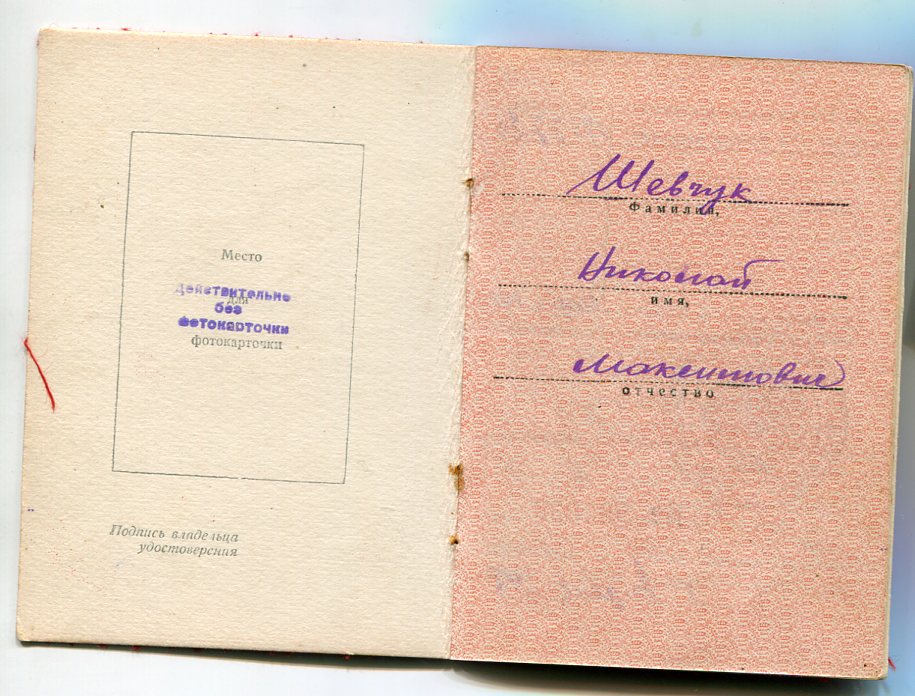 Место
для
фотокарточки
Действительно
без
фотокарточки
Подпись владельца
удостоверения
Шевчук
Фамилия,
Николай
имя,
Максимович
отчество